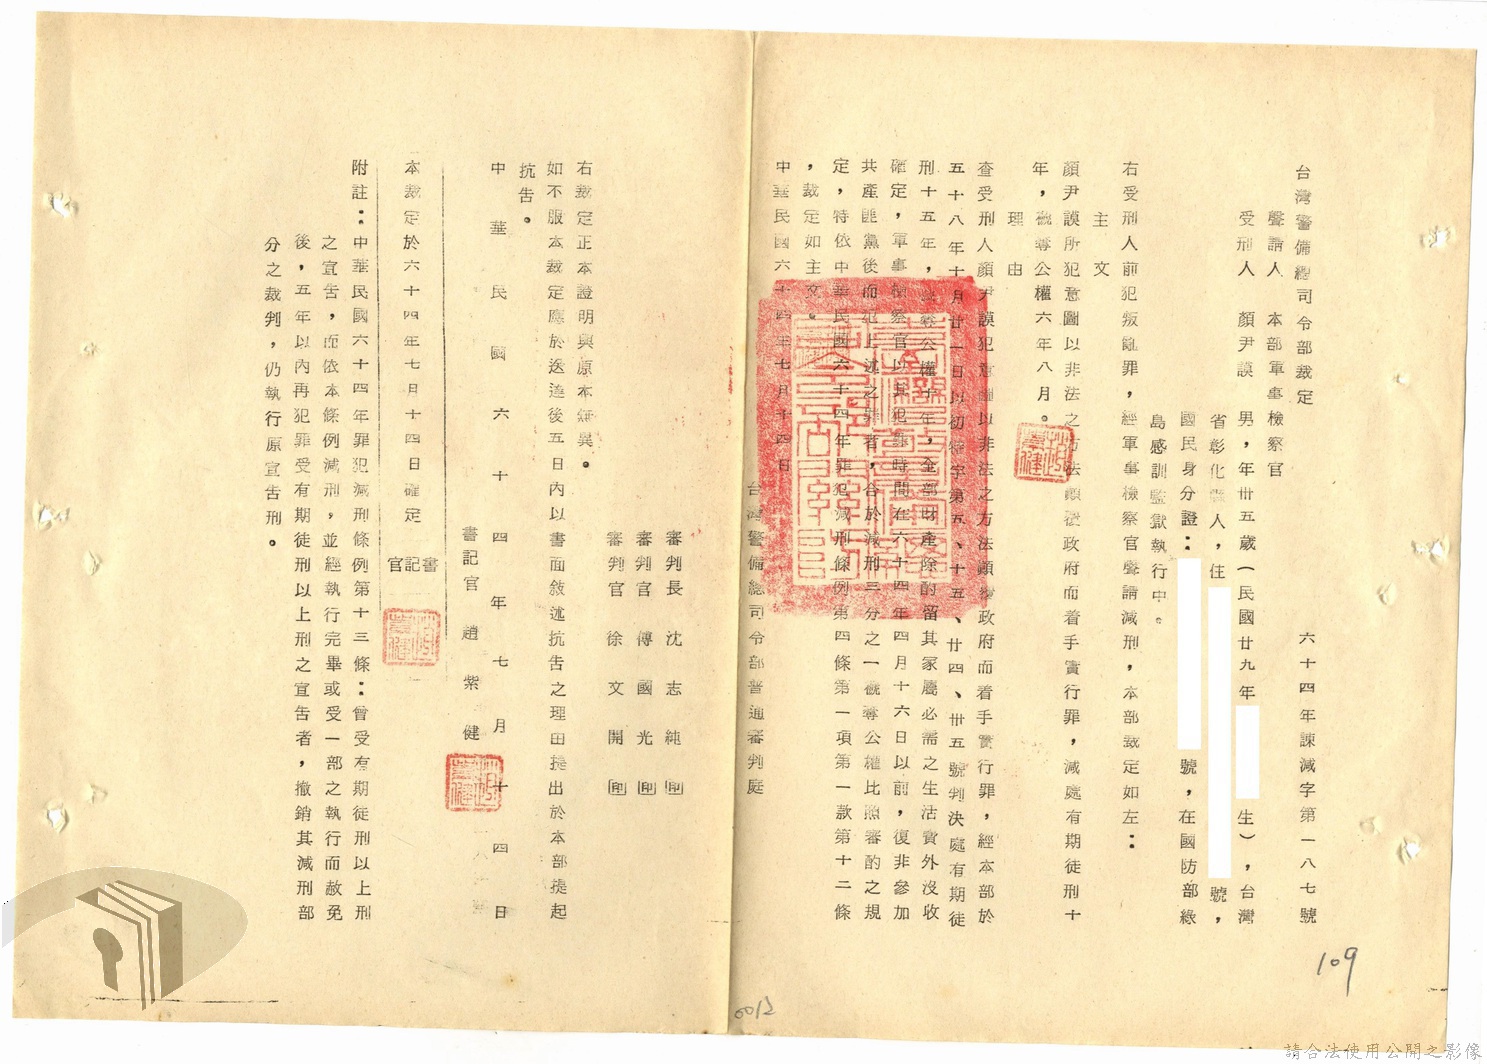 台灣警備總司令部裁定
六十四年諫減字第一八七號
聲請人　本部軍事檢察官
受刑人　顏尹謨　男，年卅五歲（民國廿九年
生），台灣
省彰化縣人，住
號，
國民身分證：
號，在國防部綠
島感訓監獄執行中。
右受刑人前犯叛亂罪，經軍事檢察官聲請減刑，本部裁定如左：
主文
顏尹謨所犯意圖以非法之方法顛覆政府而着手實行罪，減處有期徒刑十
年，褫奪公權六年八月。
理由
查受刑人顏尹謨犯意圖以非法之方法顛覆政府而着手實行罪，經本部於
五十八年十月廿一日以初特字第五、十五、廿四、卅五號判決處有期徒
刑十五年，褫奪公權十年，全部財產除酌留其家屬必需之生活費外沒收
確定，軍事檢察官以其犯罪時間在六十四年四月十六日以前，復非參加
共產匪黨後而犯上述之罪者，合於減刑三分之一褫奪公權比照審酌之規
定，特依中華民國六十四年罪犯減刑條例第四條第一項第一款第十二條
，裁定如主文。
中華民國六十四年七月十四日
台灣警備總司令部普通審判庭
審判長　沈志純　印
審判官　傅國光　印
審判官　徐文開　印
右裁定正本證明與原本無異。
如不服本裁定應於送達後五日內以書面敘述抗告之理由提出於本部提起
抗告。
中華民國六十四年七月十四日
書記官　趙紫健
本裁定於六十四年七月十四日確定
書記官
附註：中華民國六十四年罪犯減刑條例第十三條：曾受有期徒刑以上刑
之宣告，而依本條例減刑，並經執行完畢或受一部之執行而赦免
後，五年以內再犯罪受有期徒刑以上刑之宣告者，撤銷其減刑部
分之裁判，仍執行原宣告刑。
109
請合法使用公開之影像